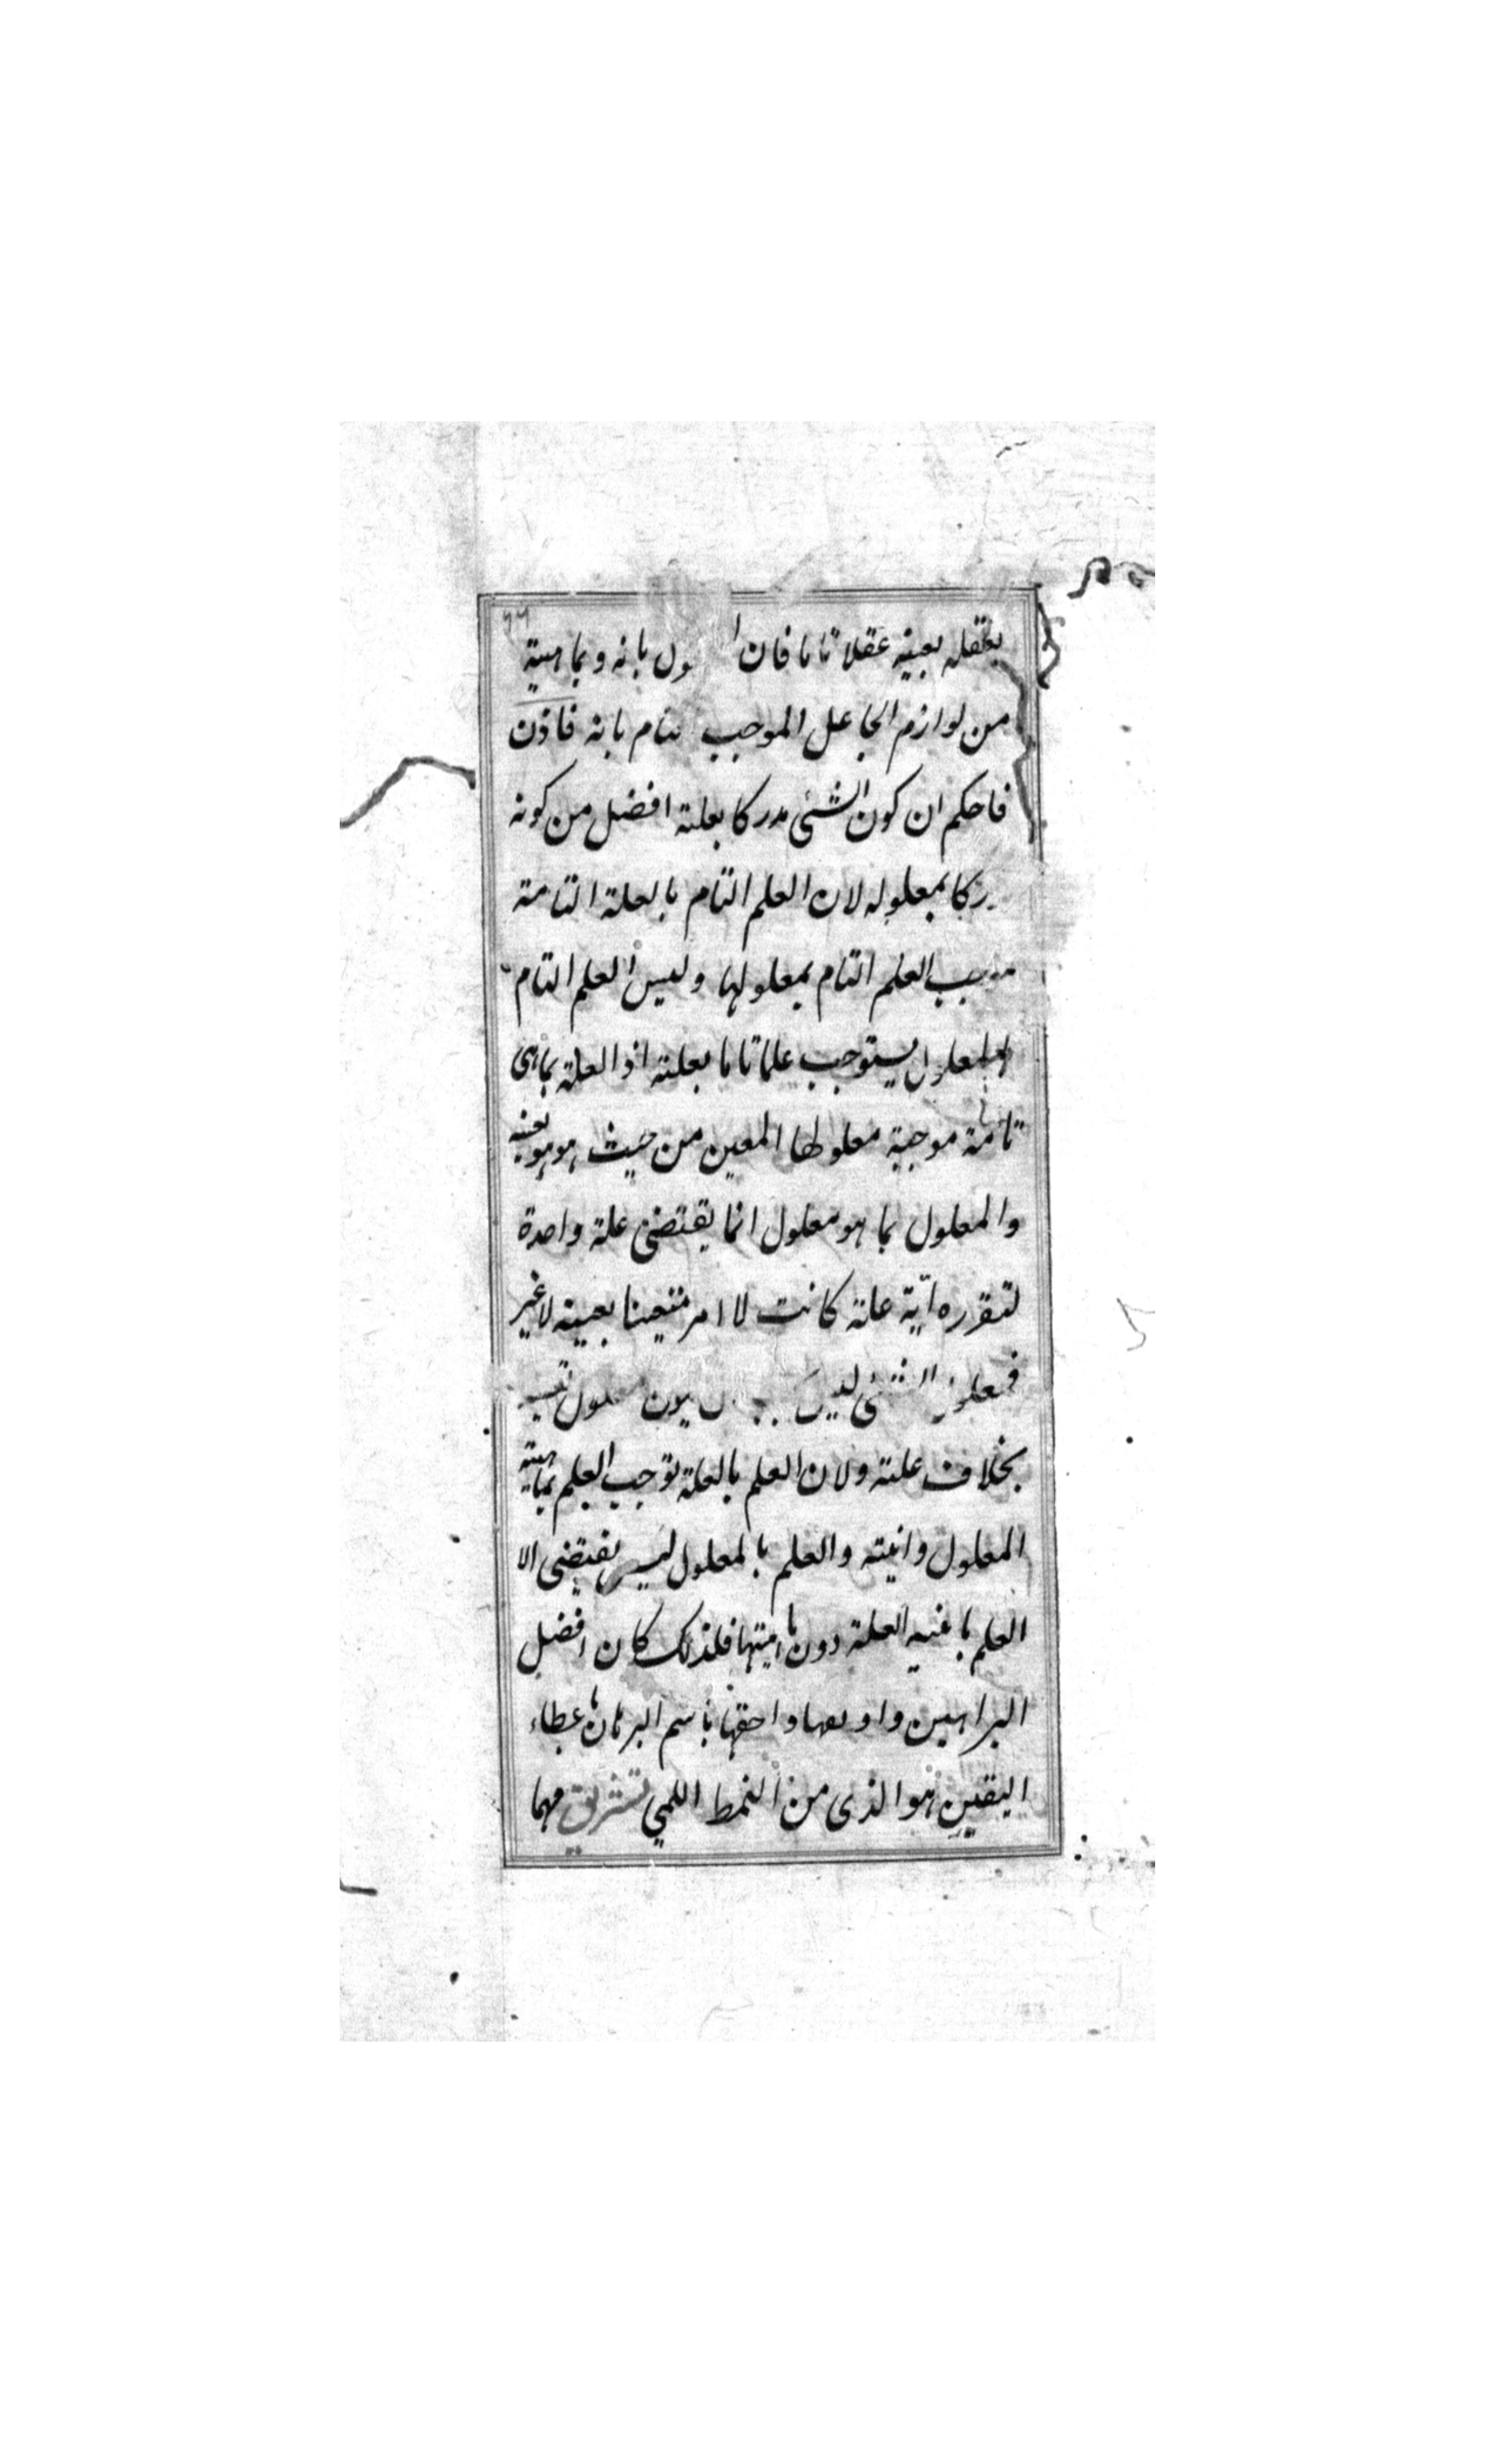 يعقله بعينه عقلا تاما فان بانه وبماهيته
من لوازم الجاعل الموجب بانه فاذن
فاحكم ان كون الشئ مدركا بعلته افضل من كونه
ركا بمعلوله لان العلم التام بالعلة التامة
العلم التام بمعلولها وليس العلم التام
بالمعلول يستوجب علما تاما بعلته اذ العلة بما هى
تامة موجبة معلولها المعين من حيث هو هو بعينه
والمعلول بما هو معلول انما يقتضى علة واحدة
لتقرره اية علة كانت لا امر متعينا بعينه لا غير
الشئ
بخلاف علته ولان العلم بالعلة توجب العلم بماهية
المعلول وانيته والعلم بالمعلول ليس يقتضى الا
العلم بانية العلة دون ماهيتها فلذلك كان افضل
البراهين واحقها باسم البرهان عطاء
اليقين هو الذى من النمط اللمي تشريق مهما